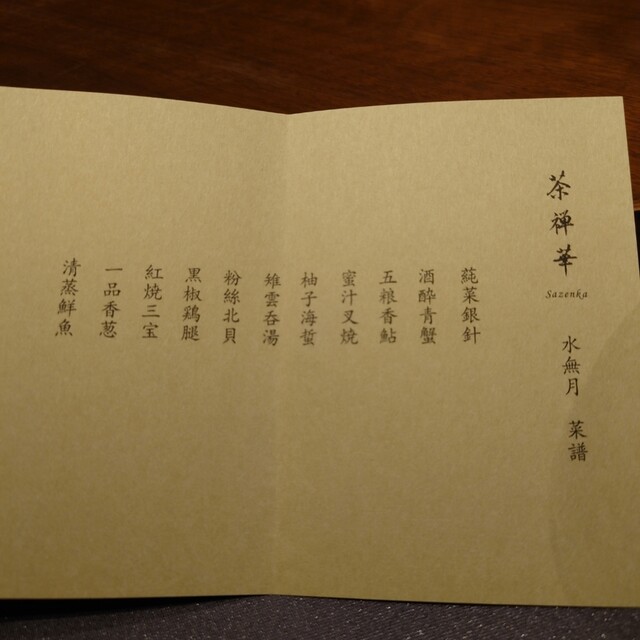 茶禅華
Sazenka
水無月 菜譜
蒓菜銀針
酒醉青蟹
五粮香鮎
蜜汁叉焼
柚子海蜇
雉雲呑湯
粉絲北貝
黒椒鶏腿
紅焼三宝
一品香葱
清蒸鮮魚